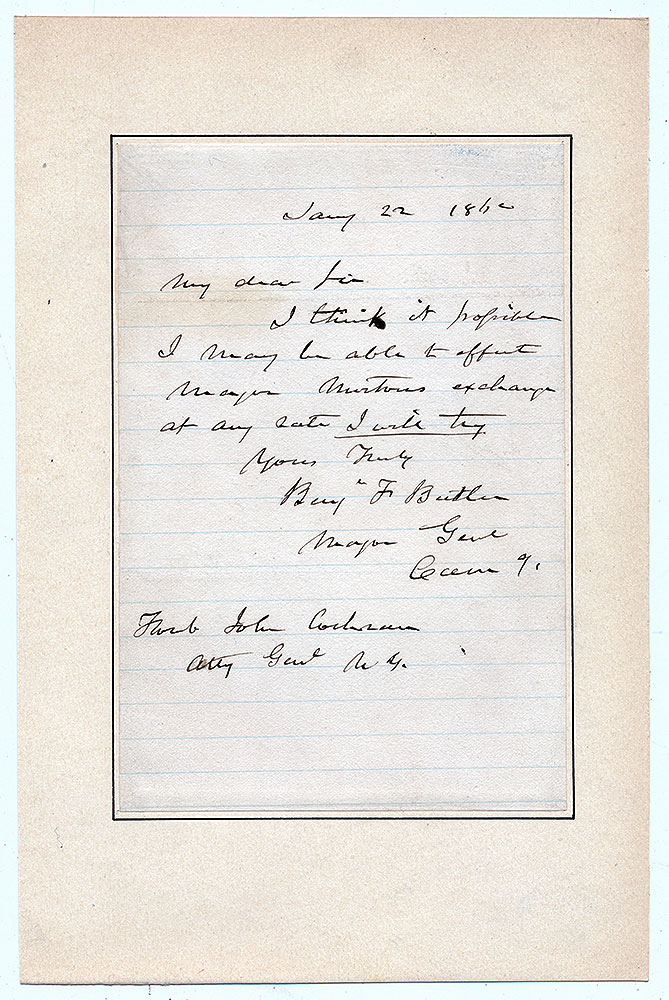 Jany 22 186
My dear Sir
I think it possible
I may be able to effect
Major exchange
at any rate I will try
Yours Truly
Benjn F Butler
Major Genl
Comm g.
Honb John Cochrane
Atty Genl N Y.